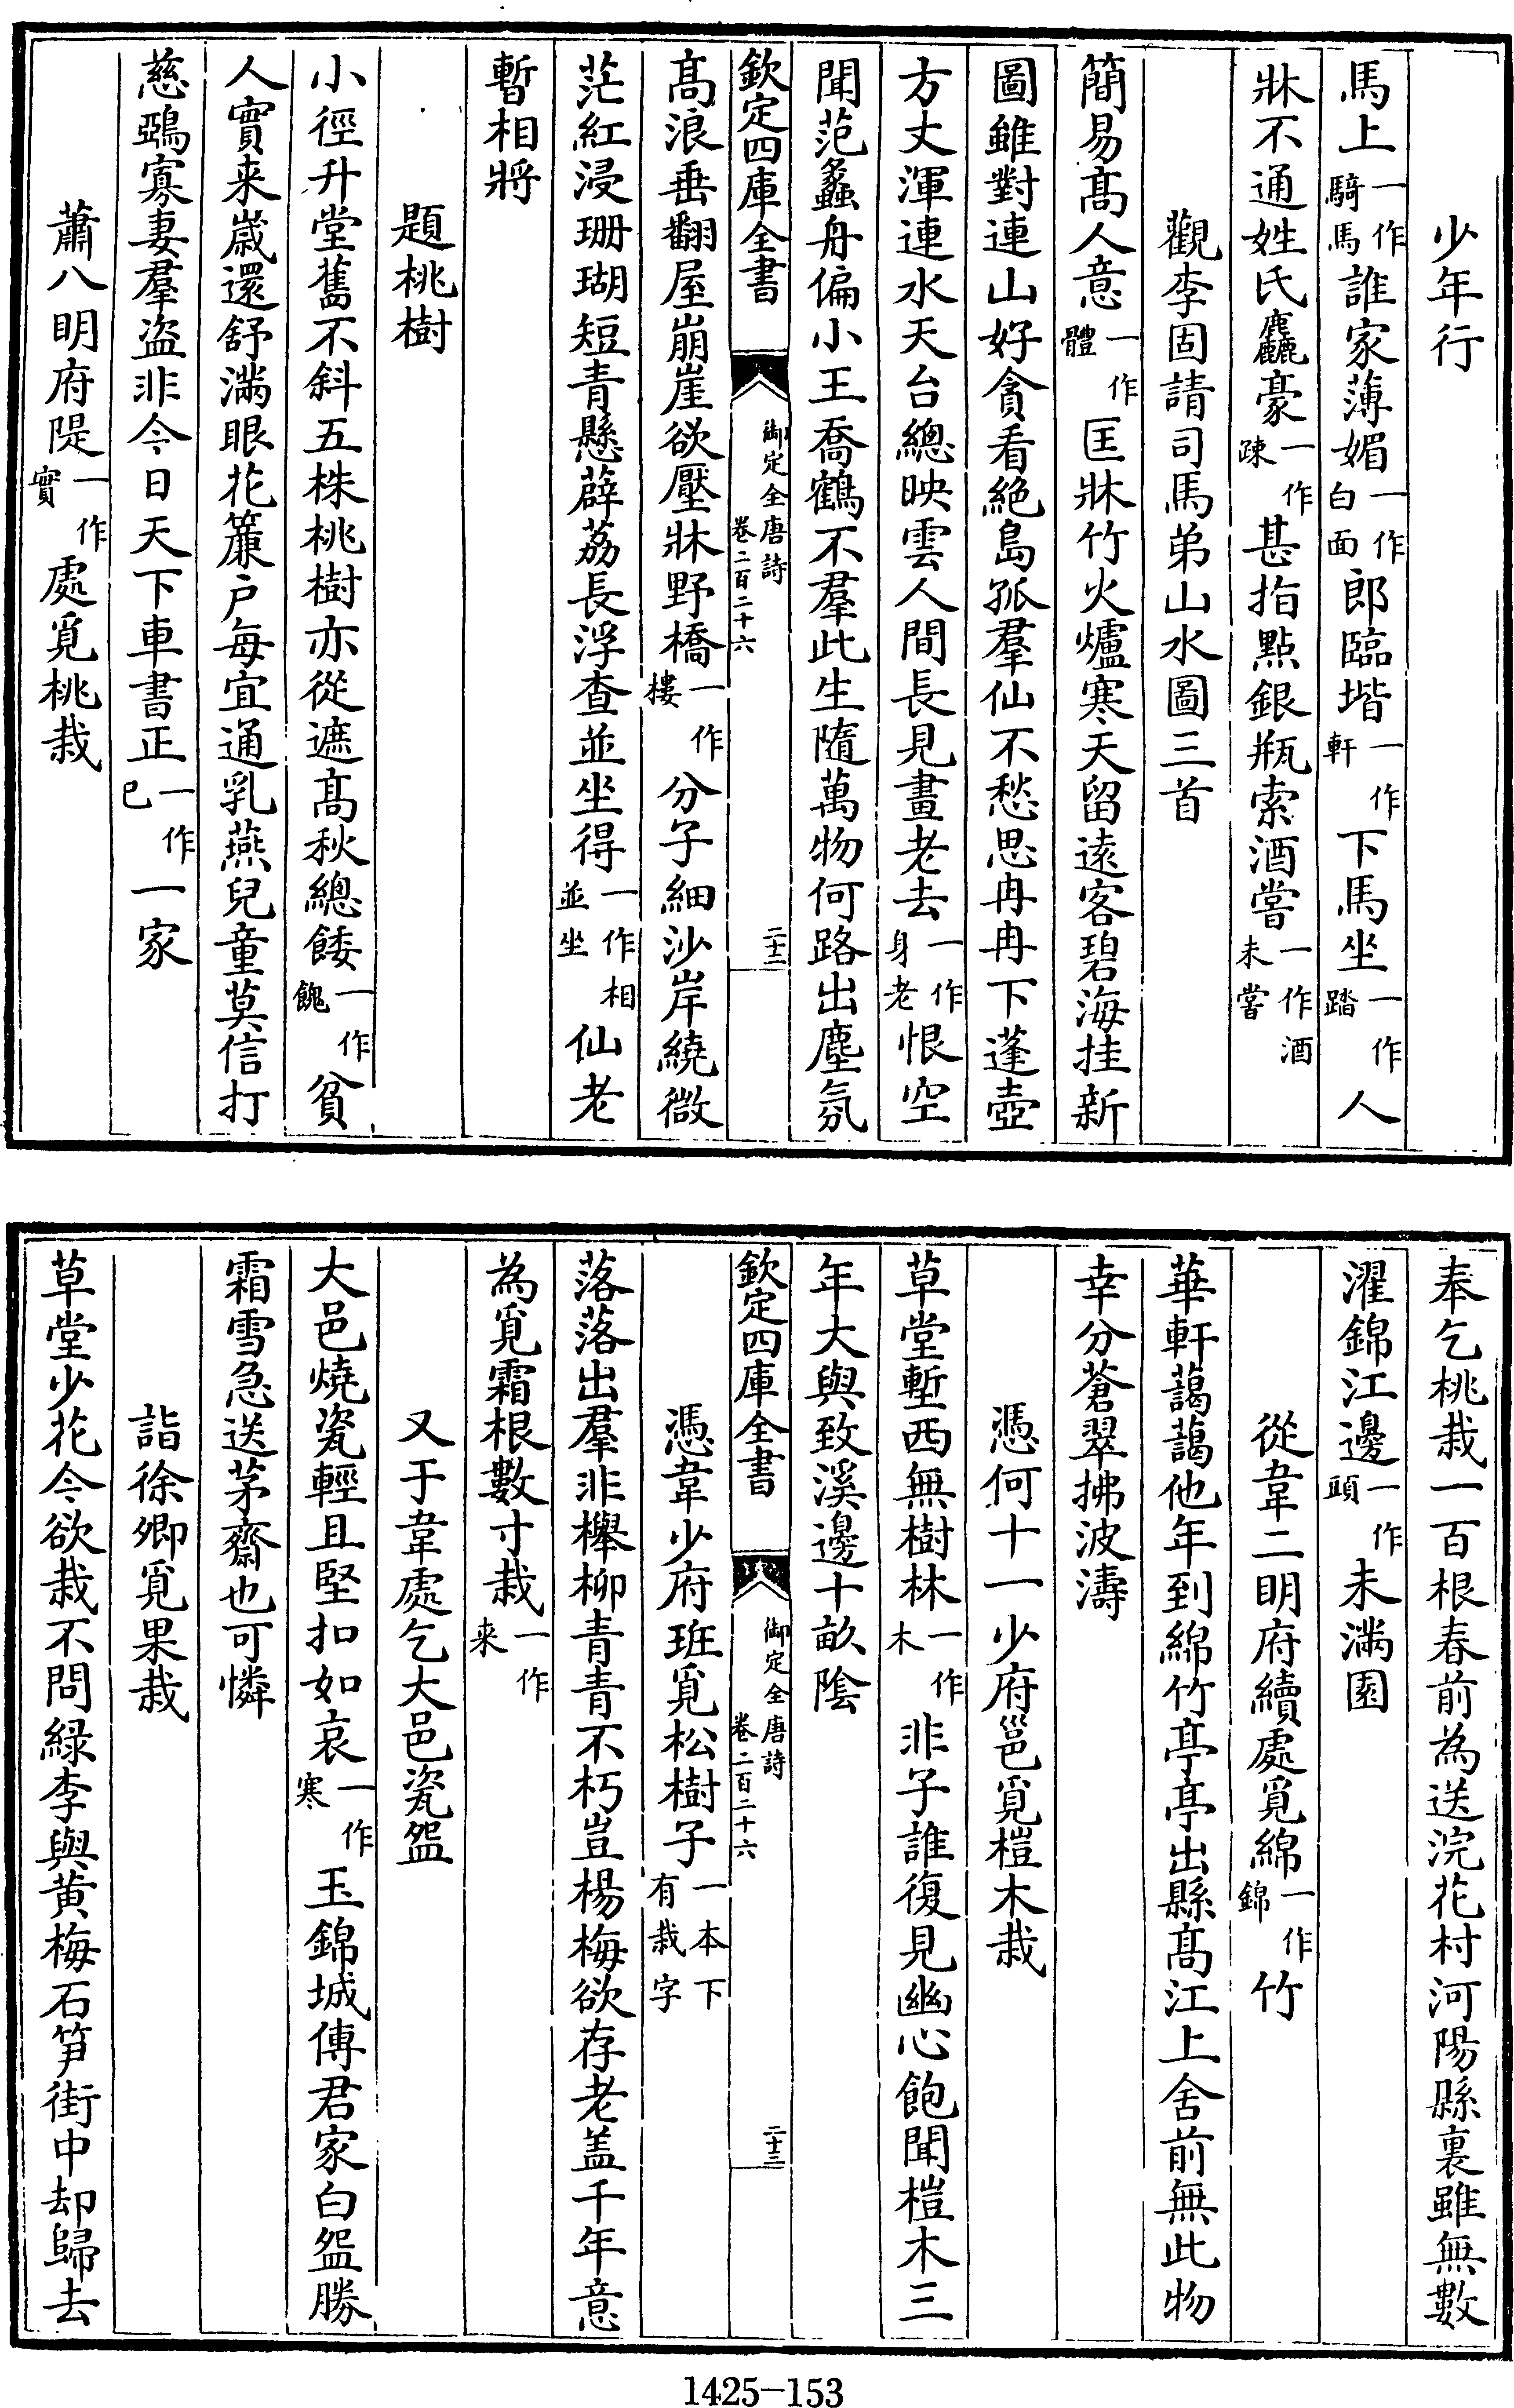 少年行
馬上一作騎馬誰家薄媚一作白面郎臨堦一作軒下馬坐一作踏人
牀不通姓氏麤豪一作疎甚指點銀瓶索酒嘗一作酒未嘗
觀李固請司馬弟山水圖三首
簡易髙人意一作體匡牀竹火爐寒天留逺客碧海挂新
圖雖對連山好貪看絶島孤羣仙不愁思冉冉下蓬壺
方丈渾連水天台總映雲人間長見畫老去一作身老恨空
聞范蠡舟偏小王喬鶴不羣此生隨萬物何路出塵氛
欽定四庫全書 御定全唐詩卷二百二十六 二十二
髙浪垂翻屋崩崖欲壓牀野橋一作樓分子細沙岸繞微
茫紅浸珊瑚短青懸薜荔長浮查並坐得一作相並坐仙老
暫相將
題桃樹
小徑升堂舊不斜五株桃樹亦從遮髙秋總餧一作餽貧
人實来歳還舒滿眼花簾户每宜通乳燕兒童莫信打
慈鵶寡妻羣盗非今日天下車書正一作已一家
蕭八明府隄一作實處覓桃栽
奉乞桃栽一百根春前為送浣花村河陽縣裏雖無數
濯錦江邊一作頭未滿園
從韋二明府續處覓綿一作錦竹
華軒藹藹他年到綿竹亭亭出縣髙江上舍前無此物
幸分蒼翠拂波濤
憑何十一少府邕覓榿木栽
草堂塹西無樹林一作木非子誰復見幽心飽聞榿木三
年大與致溪邊十畝陰
欽定四庫全書 御定全唐詩卷二百二十六 二十三
憑韋少府班覓松樹子一本下有栽字
落落出羣非櫸柳青青不朽豈楊梅欲存老盖千年意
為覓霜根數寸栽一作来
又于韋處乞大邑瓷盌
大邑燒瓷輕且堅扣如哀一作寒玉錦城傳君家白盌勝
霜雪急送茅齋也可憐
詣徐卿覓果栽
草堂少花今欲栽不問緑李與黄梅石笋街中却歸去
1425-153